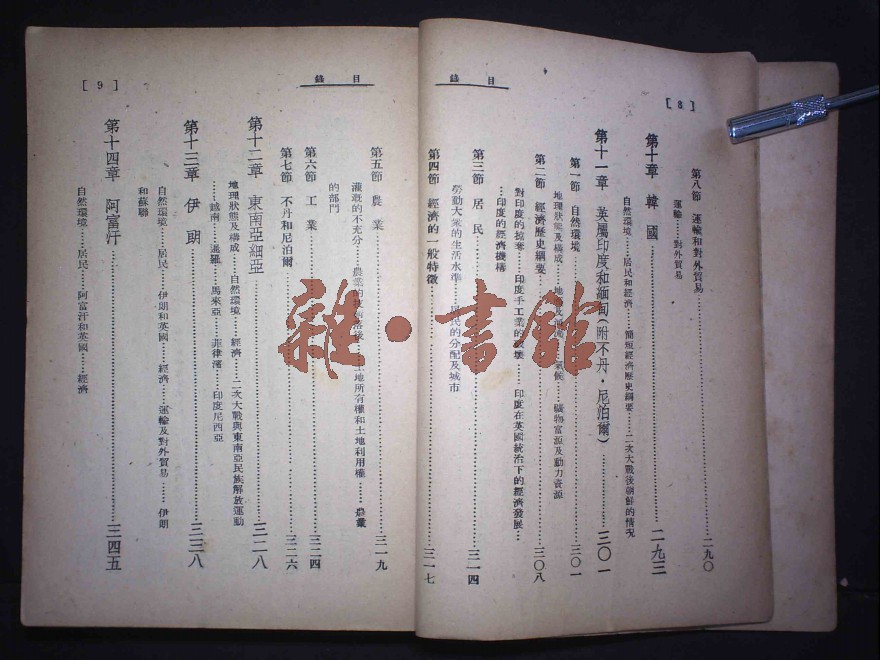 目錄
[8]
第八節 運輸和對外貿易……二九〇
運輸……對外貿易
第十章 韓國……二九三
自然環境……居民和經濟……簡短經濟歷史綱要……二次大戰後朝鮮的情況
第十一章 英屬印度和緬甸(附不丹・尼泊爾)……三〇一
第一節 自然環境……三〇一
地理狀態及構成……地……氣候……礦物富源及動力資源
第二節 經濟歷史綱要……三〇八
對印度的掠奪……印度手工業的……壞……印度在英國統治下的經濟發展…
…印度的經濟機構
第三節 居民……三一四
勞動大衆的生活水準……居民的分配及城市
第四節 經濟的一般特徵……三一七
目錄
[9]
第五節 農業……三一九
灌漑的不充分……農業的技術落後……土地所有權和土地利用權……農業
的部門
第六節 工業……三二四
第七節 不丹和尼泊爾……三二六
第十二章 東南亞細亞……三二八
地理狀態及構成……自然環境……經濟……二次大戰與東南亞民族解放運動
……越南……暹羅……馬來亞……菲律濱……印度尼西亞
第十三章 伊朗……三三八
自然環境……居民……伊朗和英國……經濟……運輸及對外貿易……伊朗
和蘇聯
第十四章 阿富汗……三四五
自然環境……居民……阿富汗和英國……經濟
雜・書館